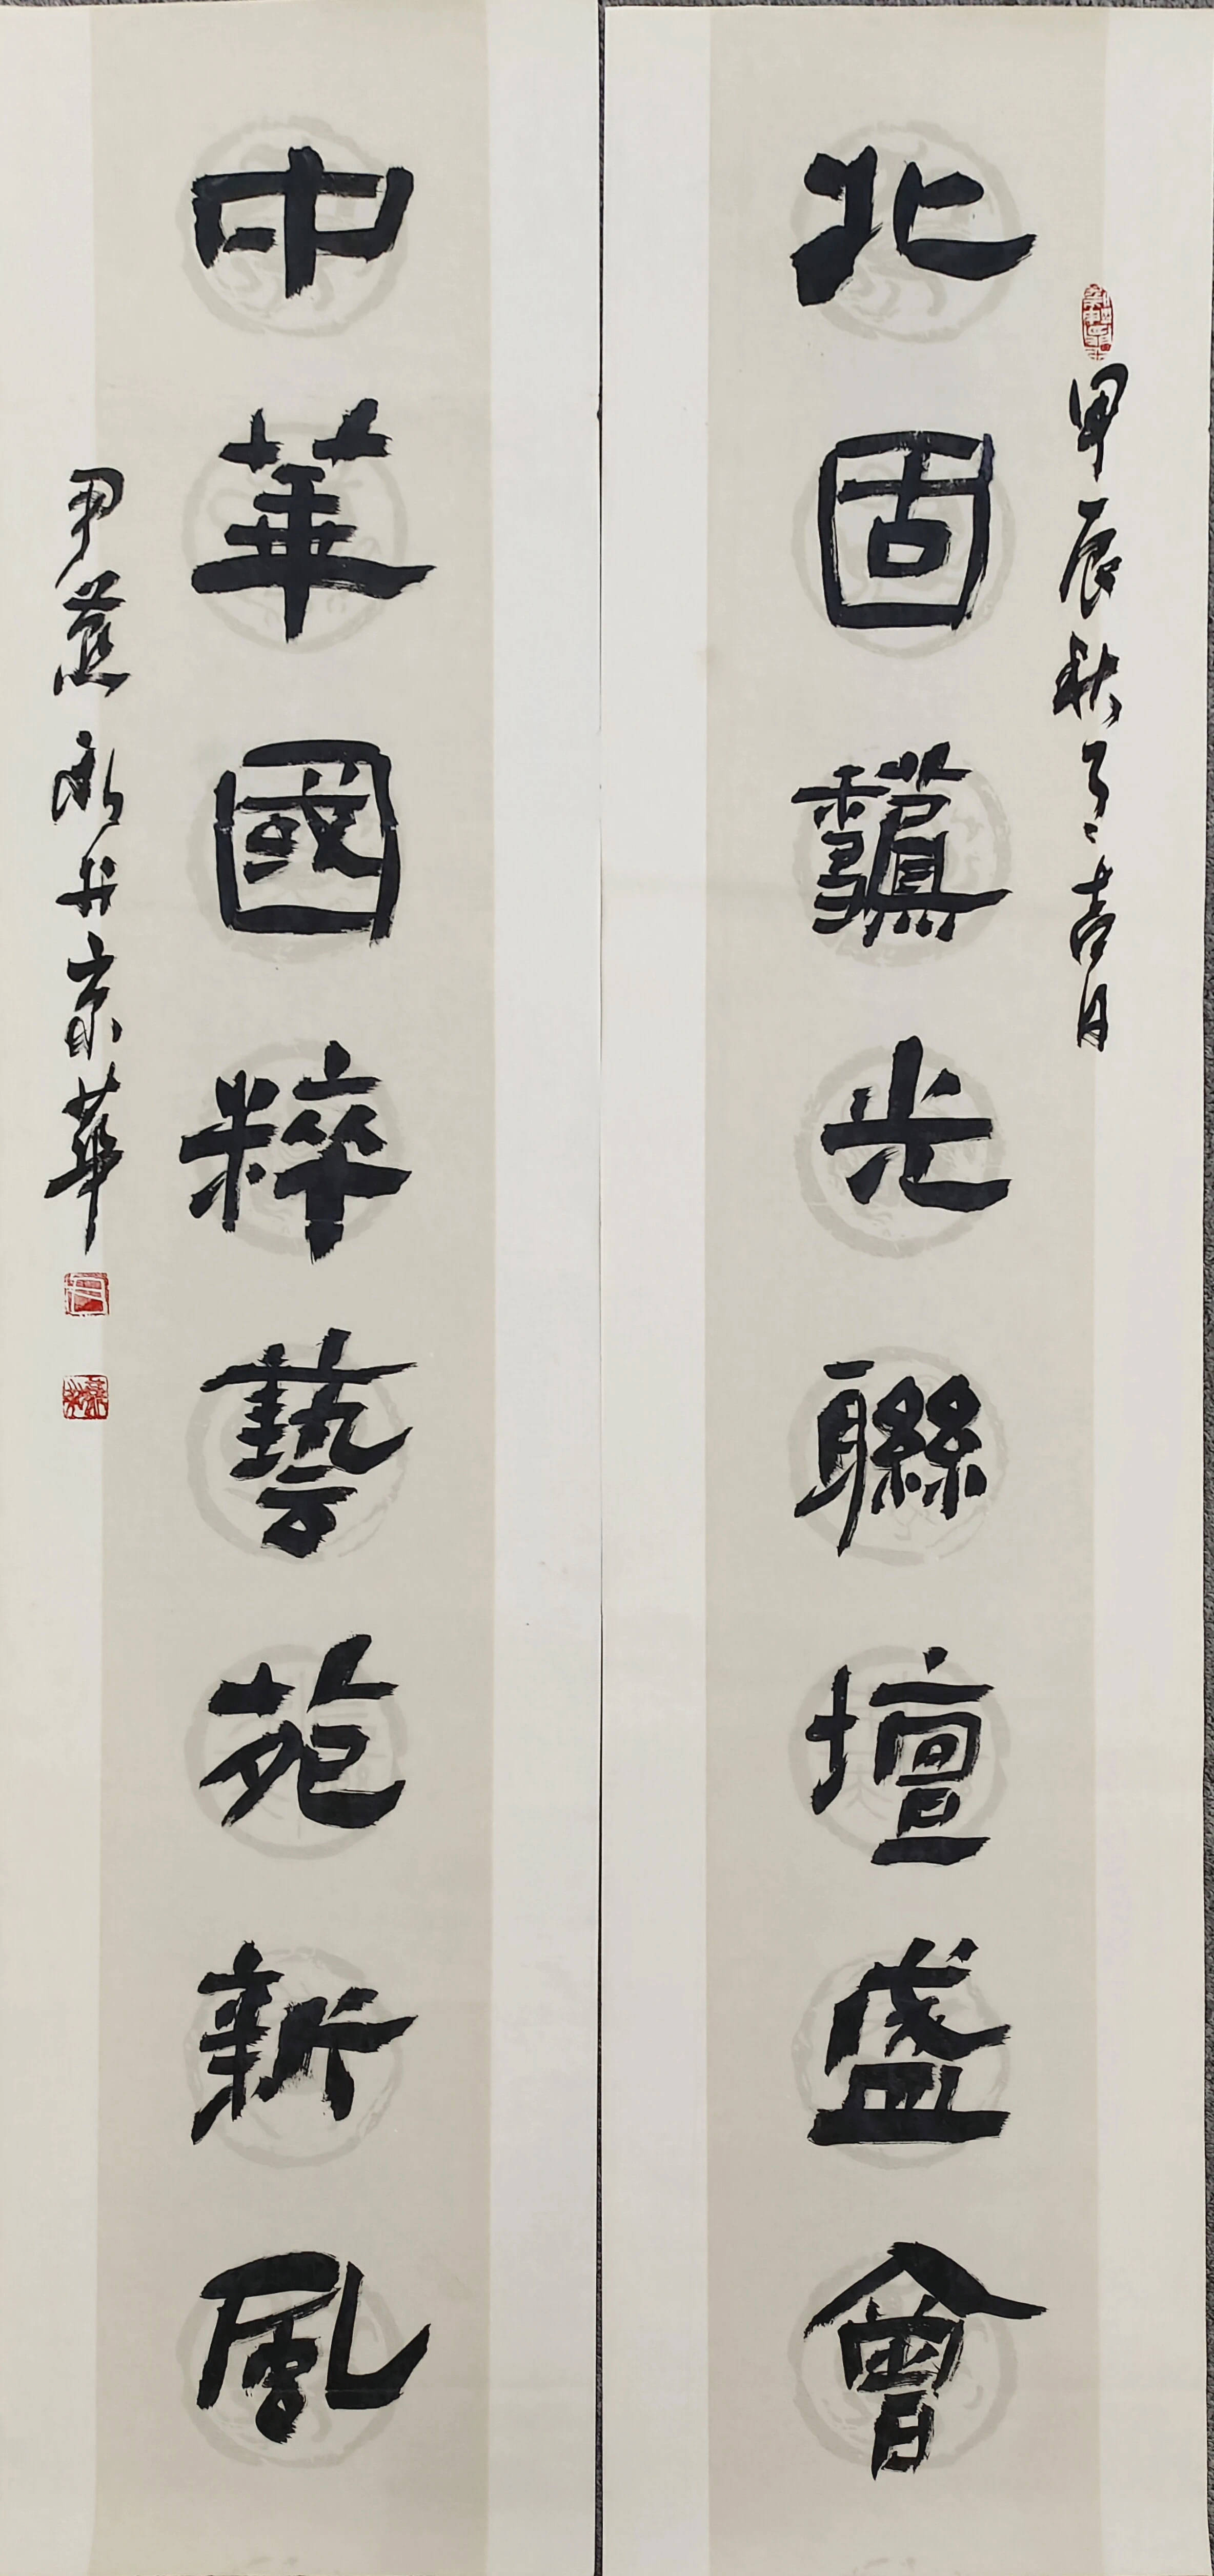 甲辰秋日之吉月
北固韻光聯壇盛會
中華國粹藝苑新風
尹燕永於京華